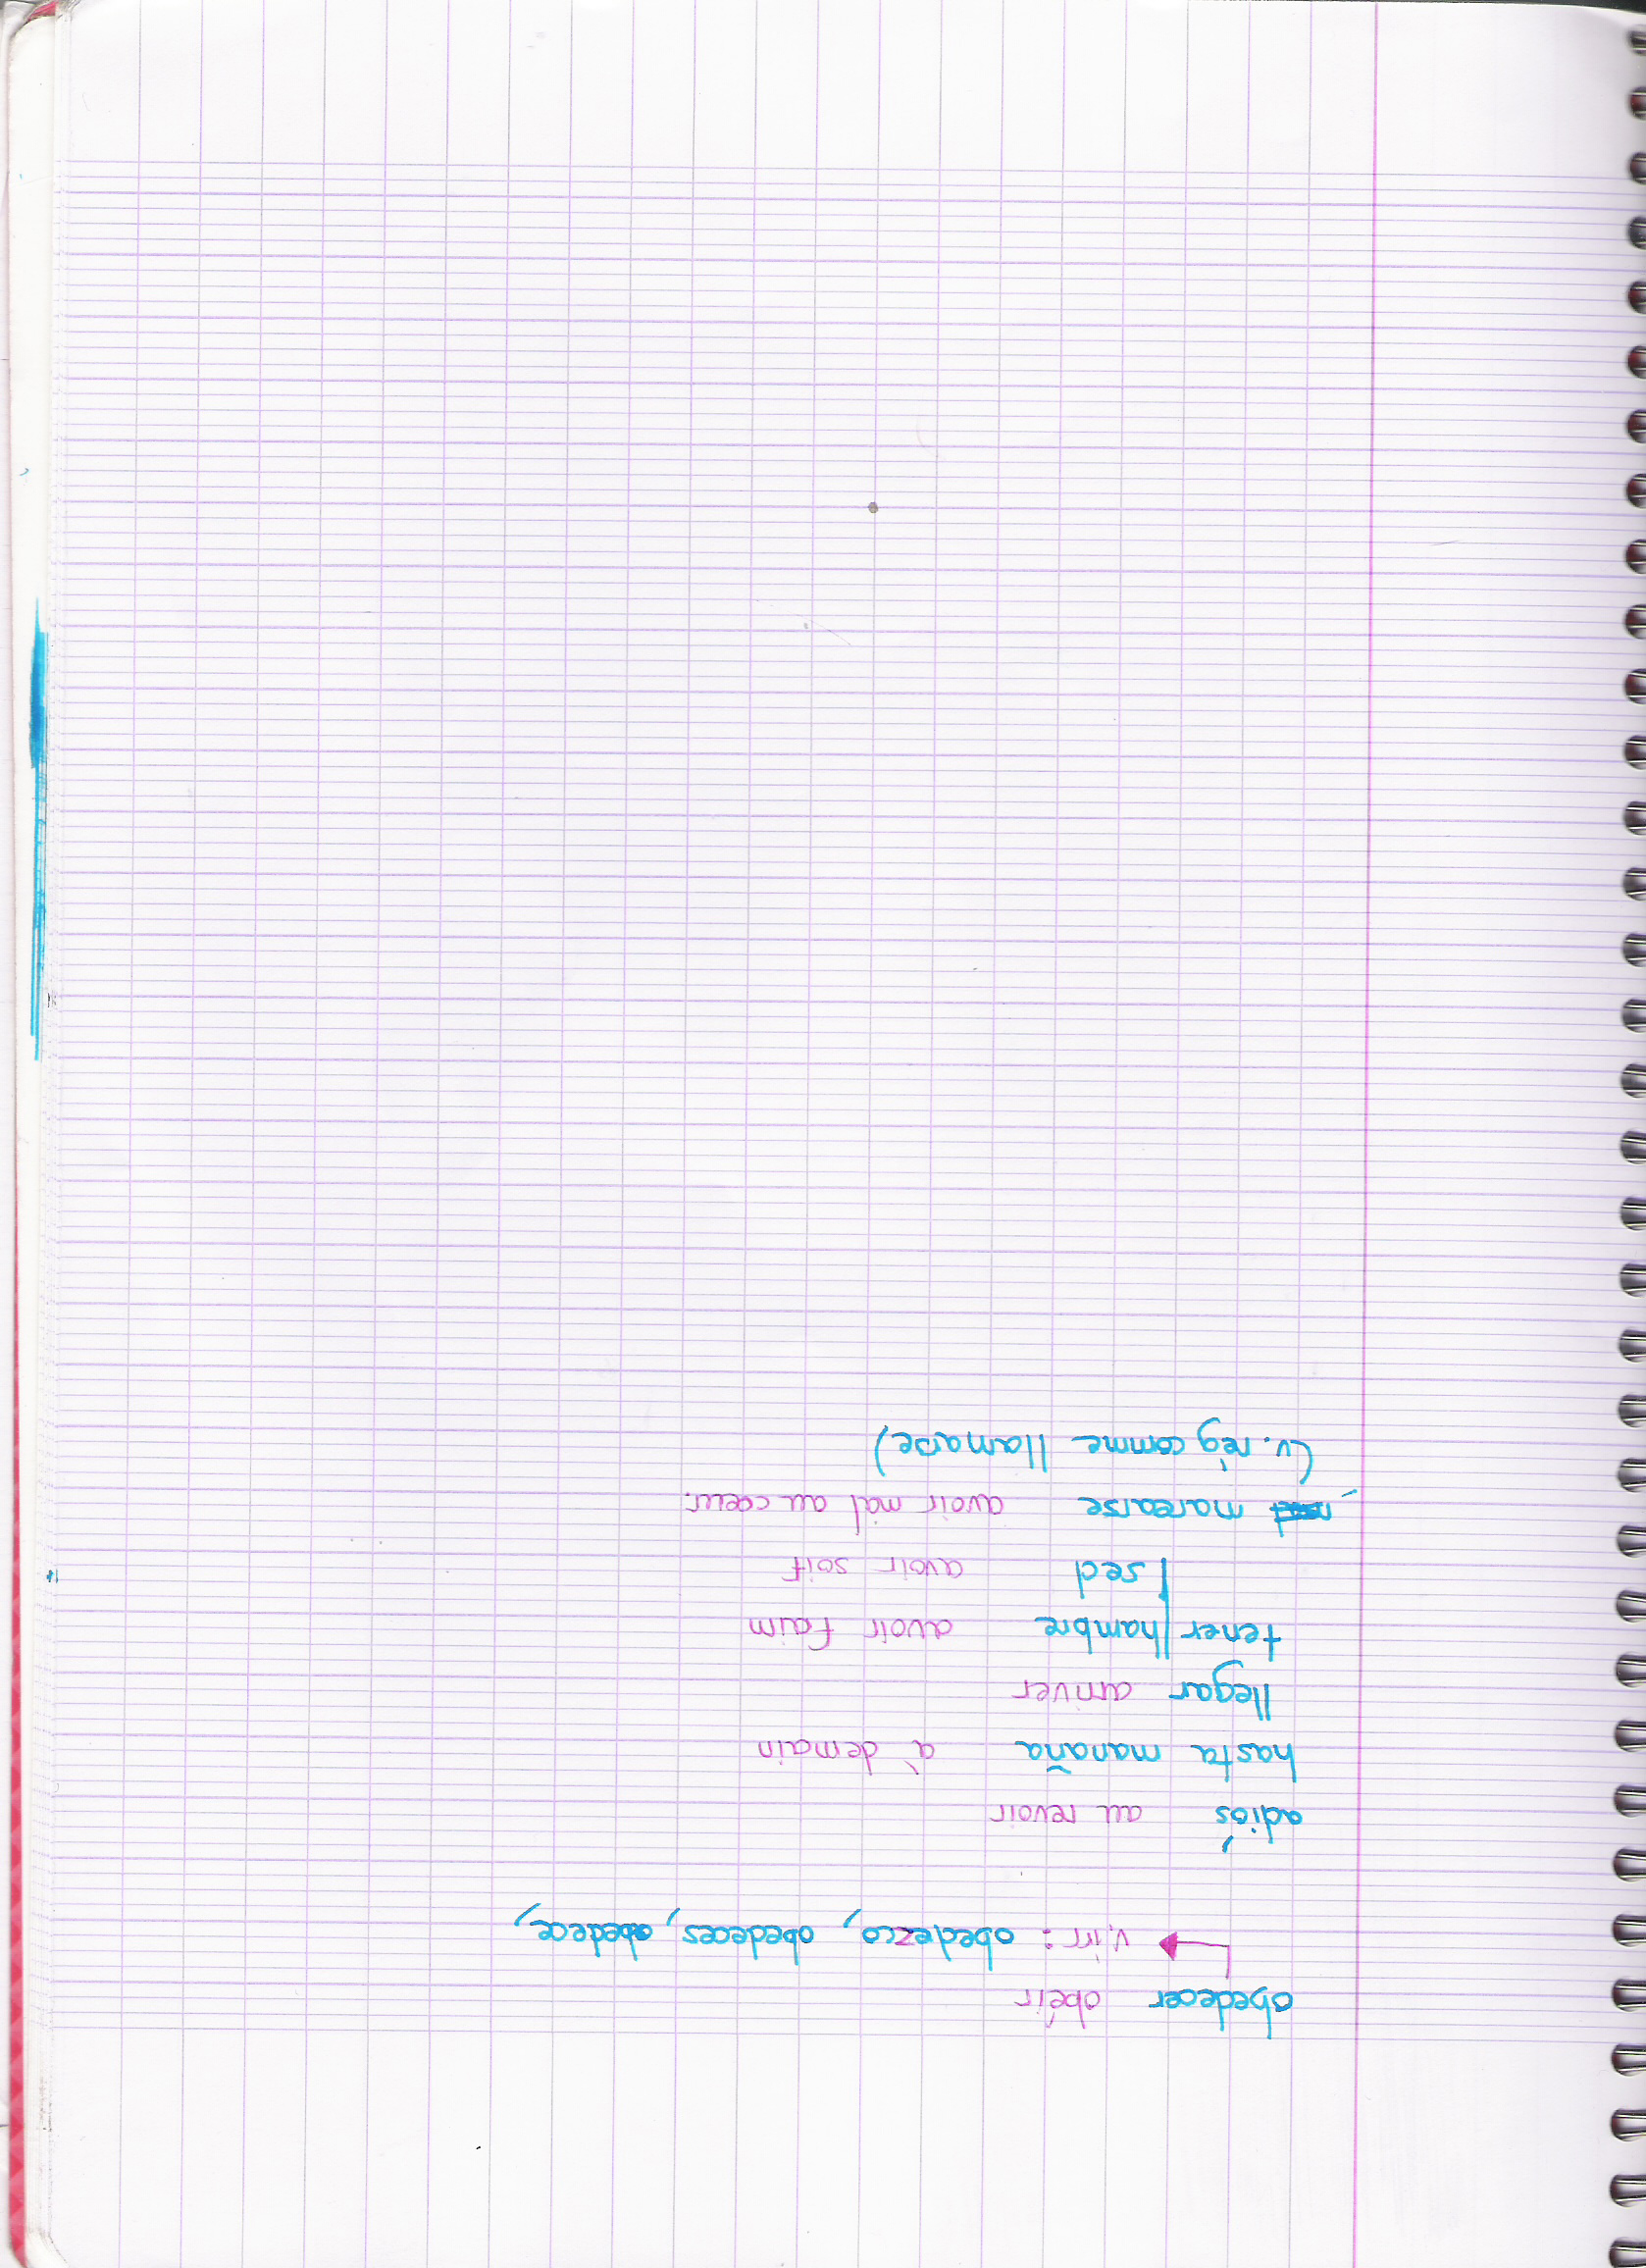 obedecer obéir
v.irr : obedezco, obedeces, obedece,
adiós au revoir
hasta mañana à demain
llegar arriver
tener hambre avoir faim
sed avoir soif
marearse avoir mal au coeur
(v. rég comme llamarse)